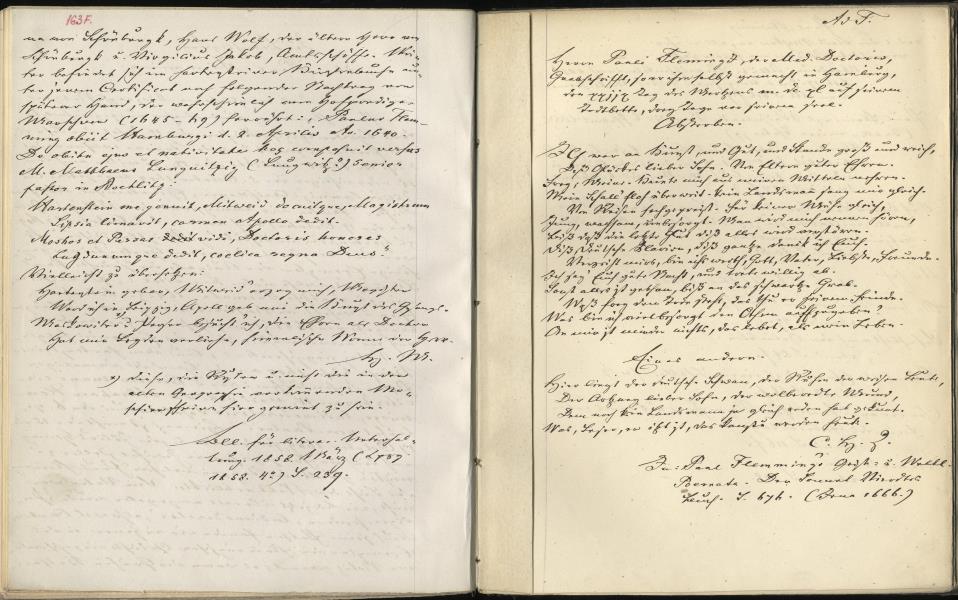 163 F.
von Schönburgk, Hans Wolf, der ältere Herr von
Schönburgk u. Virgilius Jakob, Amtsschösser. Un-
ter befindet sich im Hartensteiner Kirchenbuche un-
ter jenem Certificat noch folgender Nachtrag von
späterer Hand, der wahrscheinlich vom
(1645 - 49) herrührt: „Paulus Flem-
ming obiit Hamburgi d. 2. Aprilis Ao. 1640.
De obitu ejus et nativitate hos composuit versus
M. Matthaeus Lungwitzig (Lungwitz?) senior
pastor in Rochlitz:
Hartenstein me genuit, Mitweid docuitque, Magistrum
Lipsia limavit, carmen Apollo dedit.
Moschos et Persas vidi, Doctoris honores
Lugdunumque dedit, coelica regna Deus."
Vielleicht zu übersetzen:
Hartenstein geboren, Mitweid' erzog mich, Magister
Ward ich in Leipzig, Apoll gab mir die Kunst des Gesangs.
Moskowiter u. Perser besucht' ich, die Ehren als Doctor
Hat mir Leyden verliehn, himmlische Wonne der Herr.
x) die in der
alten Geographie vorkommenden Mo-
hier gemeint zu sein.
für literar. Unterhal-
tung. 1858. März (
1858. 4°) S. 239.
Ad F.
Herrn Pauli Flemmings, der Med. Doctoris,
Grabschrifft, so er ihm selbst gemacht in Hamburg,
den xxiix Tag des Mertzens m dc xl auf seinem
Todtbette, drey Tage vor seinem seel.
Absterben.
ICh war an Kunst, und Gut, und Stande groß und reich,
Deß Glückes lieber Sohn. Von Eltern guter Ehren.
Frey, Meine. Kunte mich aus meinen Mitteln nehren.
Mein Schall floh überweit. Kein Landsman sang mir gleich.
Von Reisen hochgepreist. Für keiner Mühe bleich,
Jung, wachsam, unbesorgt. Man wird mich nennen hören,
Biß daß die letzte Glut diß alles wird verstören.
Diß, Deutsche Klarien, diß gantze danck ich Euch.
Verzeiht mirs, bin ichs werth, Gott, Vater, Liebste, Freunde.
Ich sag' Euch gute Nacht, und trete willig ab.
Sonst alles ist gethan, biß an das schwartze Grab.
Was frey dem Tode steht, das thu er seinem Feinde.
Was bin ich viel besorgt den Othem auffzugeben?
An mir ist minder nichts, das lebet, als mein Leben.
Eines andern.
Hier liegt der deutsche Schwan, der Ruhm der weisen Leute,
Der Artzney lieber Sohn, der wolberedte Mund,
Dem noch kein Landsmann je gleich reden hat gekunt.
Was, Leser, er itzt ist, das kanstu werden heut.
In: Paul Flemmings Geist- u. Weltl.
Poemata. Der Sonnet Vierdtes
Buch. S. 676. (Jena 1666.)